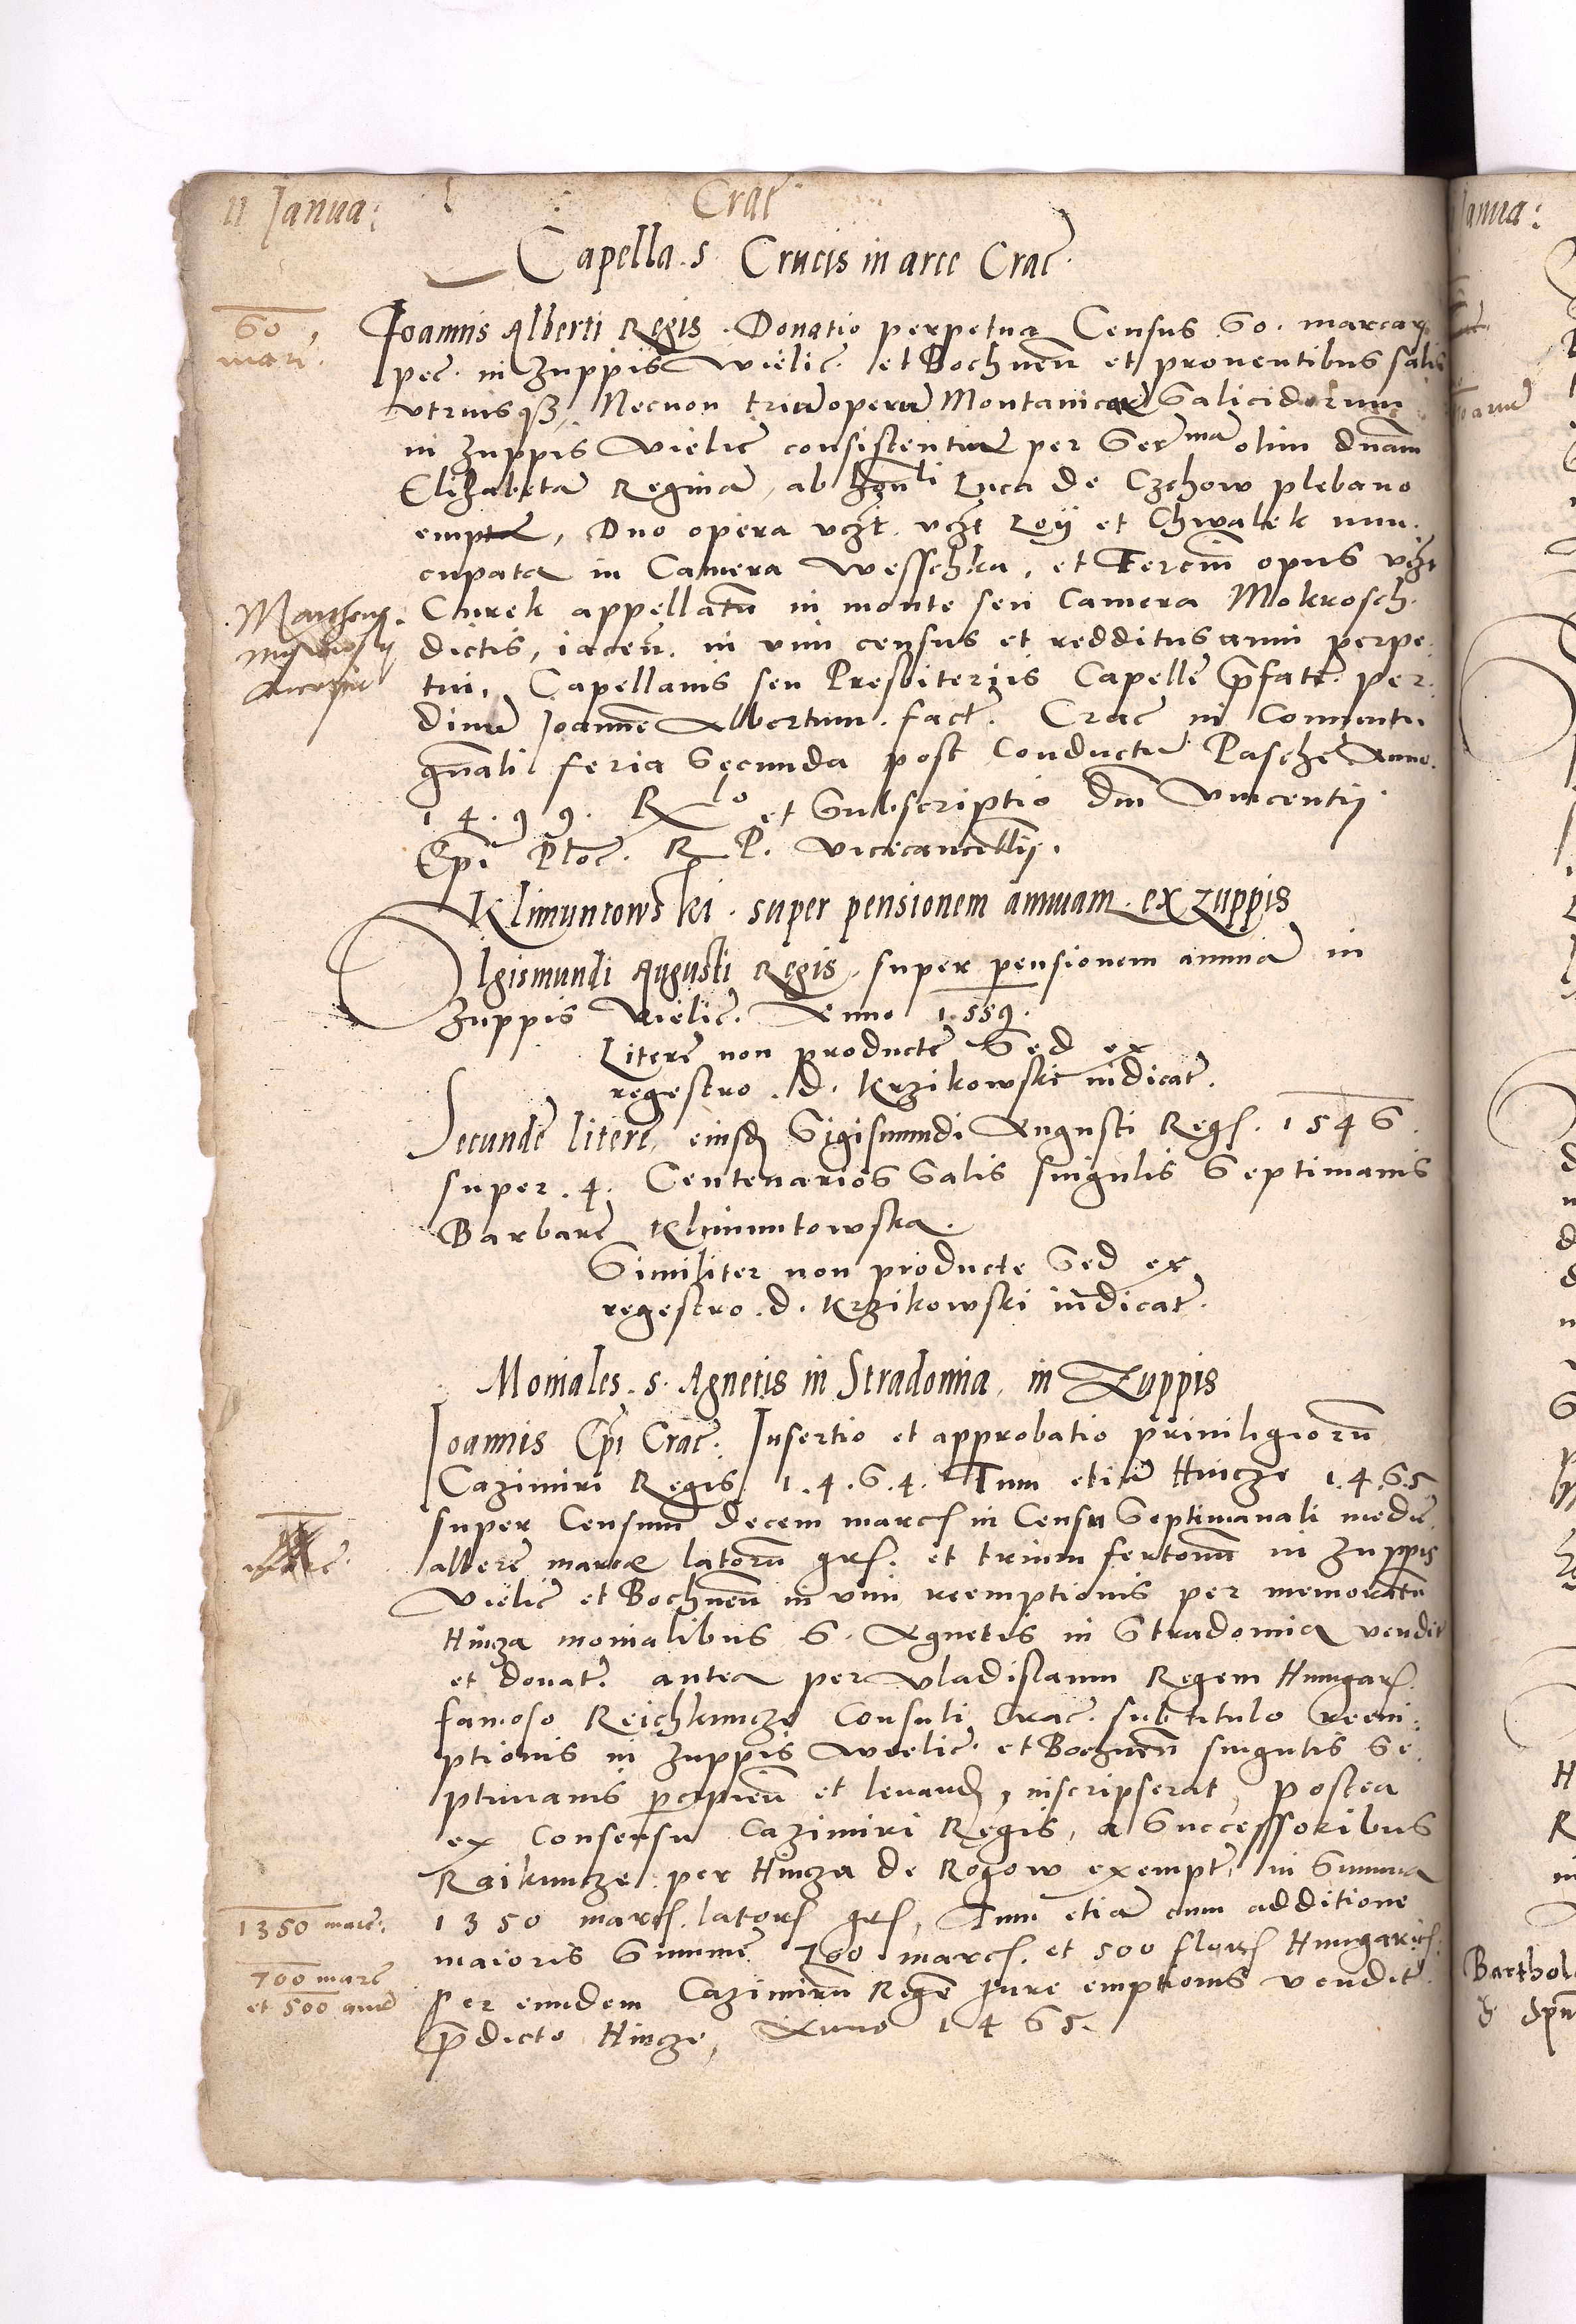 11 Janua: Crac
Capella s. Crucis in arce Crac.
60
marc.
Joannis Alberti Regis. Donatio perpetua Census 60. marcar
pec. in Zuppis Wielic. et Bochnen et prouentibus salis
vtriusqz, Necnon triu operu Montanicar Salicidarum
in Zuppis Vielic consistentiu per Ser ma olim dnam
Elizabeta Regina, ab honli Luca de Czchow plebano
empta, Duo opera vczt. vczt Roy et Chwalek nun.
cupata in Camera Wesschka, et Terciu opus vczt
Matheus
Churek appellatu in monte seu Camera Mokrosch.
dictis, iacen. in vim census et redditus anni perpe
tui, Capellanis seu Presbiteriis Capelle pfate. per
diuu Joanne Albertum. fact. Crac in Conuentu
gnali feria Secunda post Conductu Pasche Anno.
1 4. 9 9. R lo et Subscriptio dni Vincentij
Epi Ploc. R P. Vicecancellij.
Klimuntowski. super pensionem annuam. ex zuppis
Sigismundi Augusti Regis. super pensionem annua in
Zuppis Vielic. Anno 1.559.
Litere non producte Sed ex
regestro. d. Krzikowski indicat.
Secunde litere, eiusd Sigismundi Augusti Regs. 1546.
super. 4. Centenarios Salis singulis Septimanis
Barbare Klimuntowska.
Similiter non producte Sed ex
regestro. d. Krzikowski indicat.
Moniales. s. Agnetis in Stradomia. in Zuppis
Joannis Epi Crac. Insertio et approbatio priuilegiorum
Cazimiri Regis 1.4.6.4. Tum etia Hincze 1.4.6.5
super Censum decem marcs in Censu Septimanali medie.
albere marcae latoru grs. et trium fertonu in Zuppis
Vielic et Bochnen in vim reemptionis per memoratu
Hincza monialibus S. Agnetis in Stradomia vendit
et donat. antea per Vladislaum Regem Hungars.
famoso Reichkuncze Consuli Crac. sub titulo reem:
ptionis in Zuppis Wielic. et Bochnen singulis Se
ptimanis pcipien et leuand, inscripserat, postea
ex Consensu Cazimiri Regis, a Successoribus
Raikuncze per Hincza de Rogow exempt, in Summa
1350 marc.
1350 marcs. lators grs, Tum etia cum additione
maioris Summe 700 marcs. et 500 flors Hungarics.
700 marc
et 500 aure
per eundem Cazimiru Rege Jure emptionis vendit.
pdicto Hincze, Anno 1465.